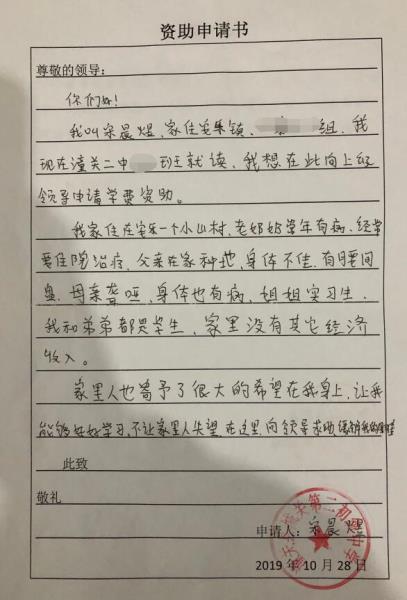 资助申请书
尊敬的领导：
你们好！
我叫宋晨煜，家住安乐镇、组，我
现在潼关二中班就读，我想在此向上级
领导申请学费资助。
我家住在安乐一个小山村，老奶奶常年有病，经常
要住院治疗，父亲在家种地，身体不佳，有腰间
盘，母亲聋哑，身体也有病，姐姐实习生，
我和弟弟都是学生，家里没有其它经济
收入。
家里人也寄予了很大的希望在我身上，让我
能够好好学习，不让家里人失望，在这里，向领导求助
此致
敬礼
申请人：宋晨煜
2019年10月28日